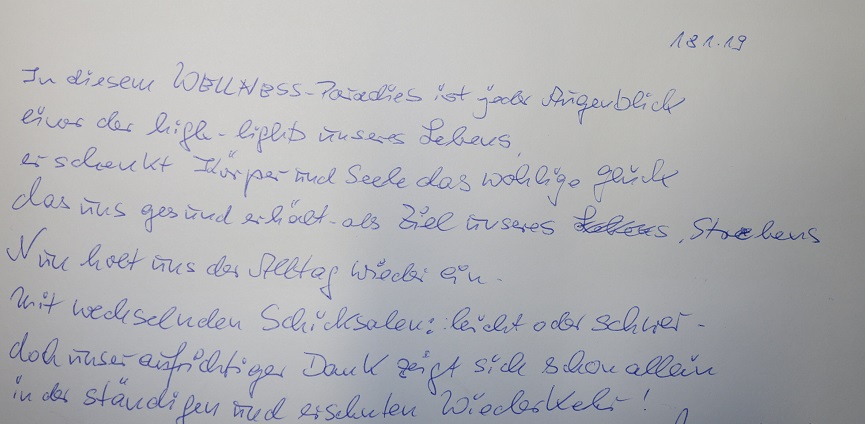 18.1.19
In diesem WELLNESS-Paradies ist jeder Augenblick
einer der high-lights unseres Lebens,
er schenkt Körper und Seele das wohlige Glück
das uns gesund erhält - als Ziel unseres Strebens
Nun holt uns der Alltag wieder ein -
mit wechselnden Schicksalen: leicht oder schwer -
doch unser aufrichtiger Dank zeigt sich schon allein
in der ständigen und ersehnten Wiederkehr!